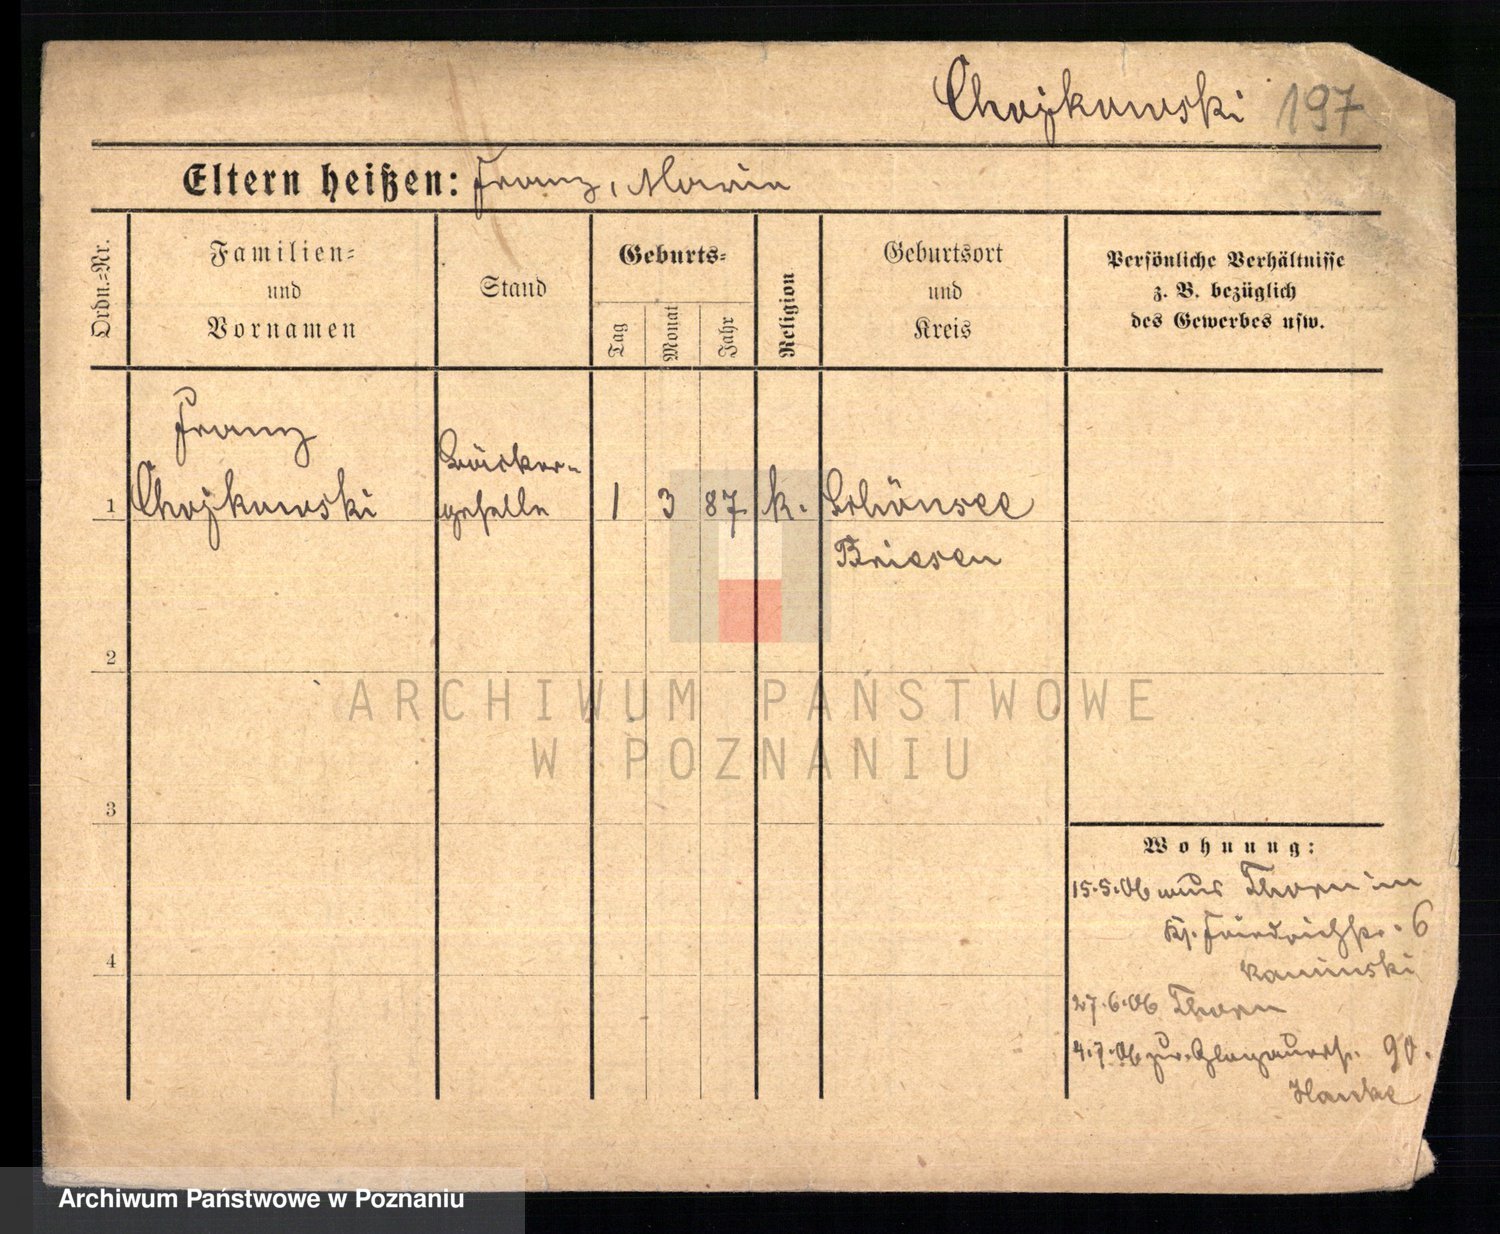 Chojkowski 197
Eltern heißen: Franz, Maria
Ordn.-Nr.
Familien-
und
Vornamen
Stand
Geburts-
Tag
Monat
Jahr
Religion
Geburtsort
und
Kreis
Persönliche Verhältnisse
z. B. bezüglich
des Gewerbes usw.
Franz
1 Chojkowski
Bäcker-
geselle
1 3 87 k. Schönsee
Briesen
2
ARCHIWUM PAŃSTWOWE
W POZNANIU
3
Wohnung:
15.5.06 aus Thorn im
Kj. Friedrichstr. 6
Kaminski
4
27.6.06 Thorn
4.7.06 zur. Glogauerstr. 90.
Hanke
Archiwum Państwowe w Poznaniu